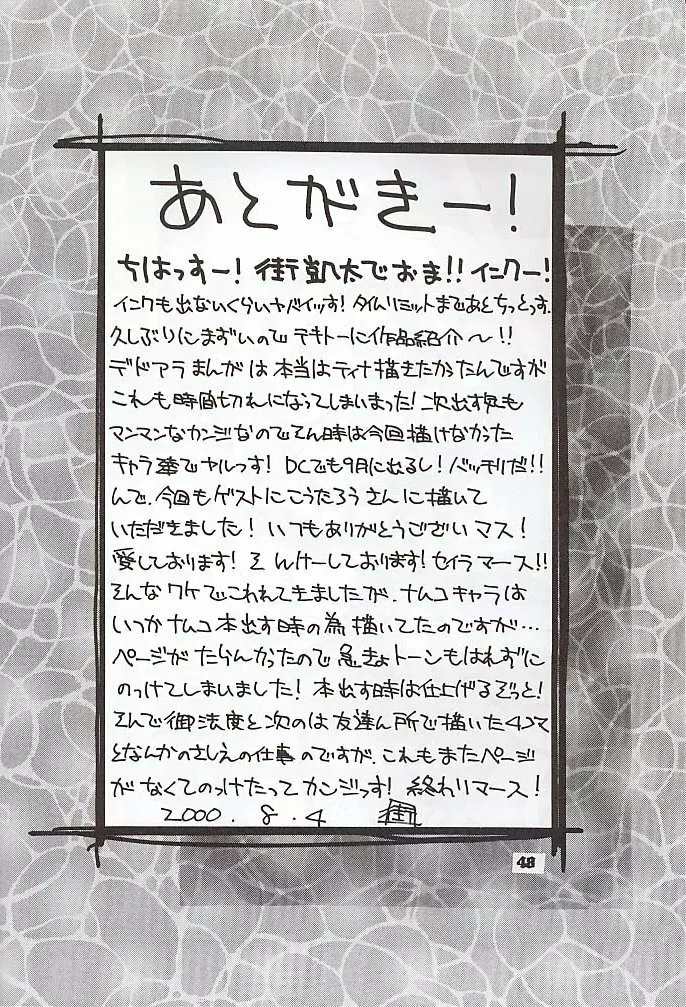 あとがきー!
ちはっすー! 街凱太でおま!! イニクー!
インクも出ないくらいヤバイッす! タイムリミットまであとちっとっす.
久しぶりにまずいので テキトーに作品紹介〜!!
デドアラ まんが は 本当はティナ描きたかったんですが
これも時間切れになってしまいまった! 次出す児も
マンマンなカンジなのでそん時は今回描けなかった
キャラ達でヤルっす! DCでも9月に出るし! バッチリだ!!
んで、今回もゲストにこうたろうさんに描いて
いただきました! いつもありがとうございマス!
愛しております! そんけーしております! セイラマース!!
そんなワケでこわれてきましたが、ナムコキャラは
いつかナムコ本出す時の為描いてたのですが…
ページがたらんかったので急きょトーンもはれずに
のっけてしまいました! 本出す時は仕上げるぞっと!
そんで御法度と次のは友達ん所で描いた4コマ
となんかのさしえの仕事のですが、これもまたページ
がなくてのっけたってカンジっす! 終わりマース!
2000.8.4 街
48